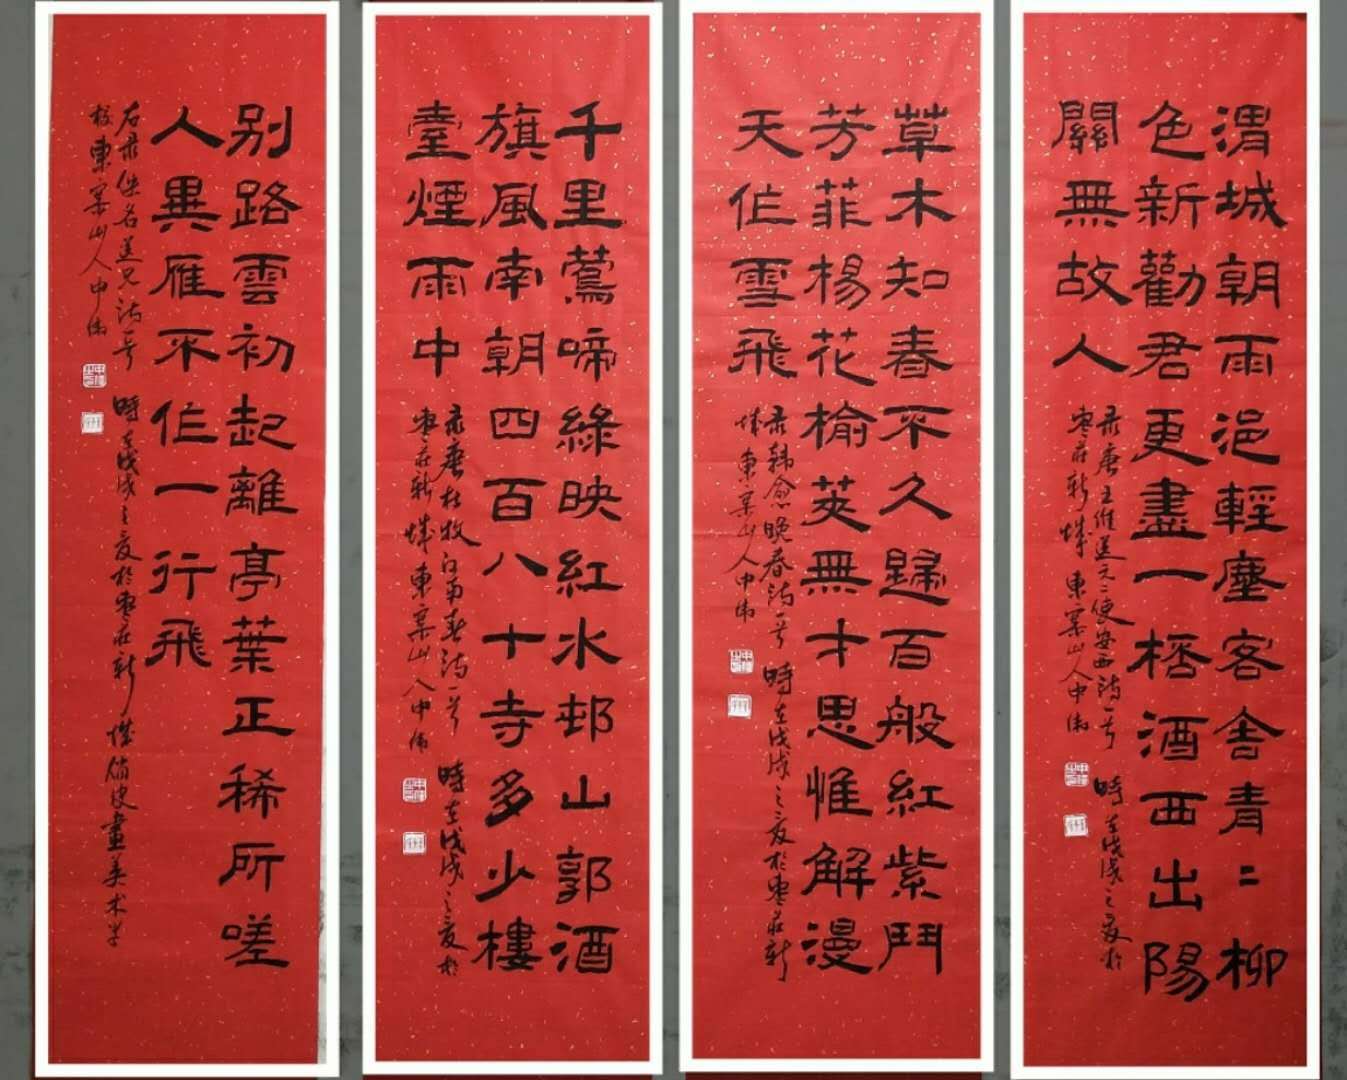 渭城朝雨浥輕塵客舍青〻柳
色新勸君更盡一桮酒西出陽
關無故人
录唐王維送元二使安西詩一首 時在戊戌之夏於
枣莊新城 東寨山人中伟
草木知春不久歸百般紅紫鬥
芳菲楊花榆莢無才思惟解漫
天作雪飛
录韩愈晚春詩一首 時在戊戌之夏於枣莊新
城東寨山人中伟
千里鶯啼綠映紅水邨山郭酒
旗風南朝四百八十寺多少樓
臺煙雨中
录唐杜牧江南春詩一首 時在戊戌之夏於
枣莊新城東寨山人中伟
别路雲初起離亭葉正稀所嗟
人異雁不作一行飛
右录佚名送兄詩一首 時在戊戌之夏於枣莊新城 書画美术学
校東寨山人中伟